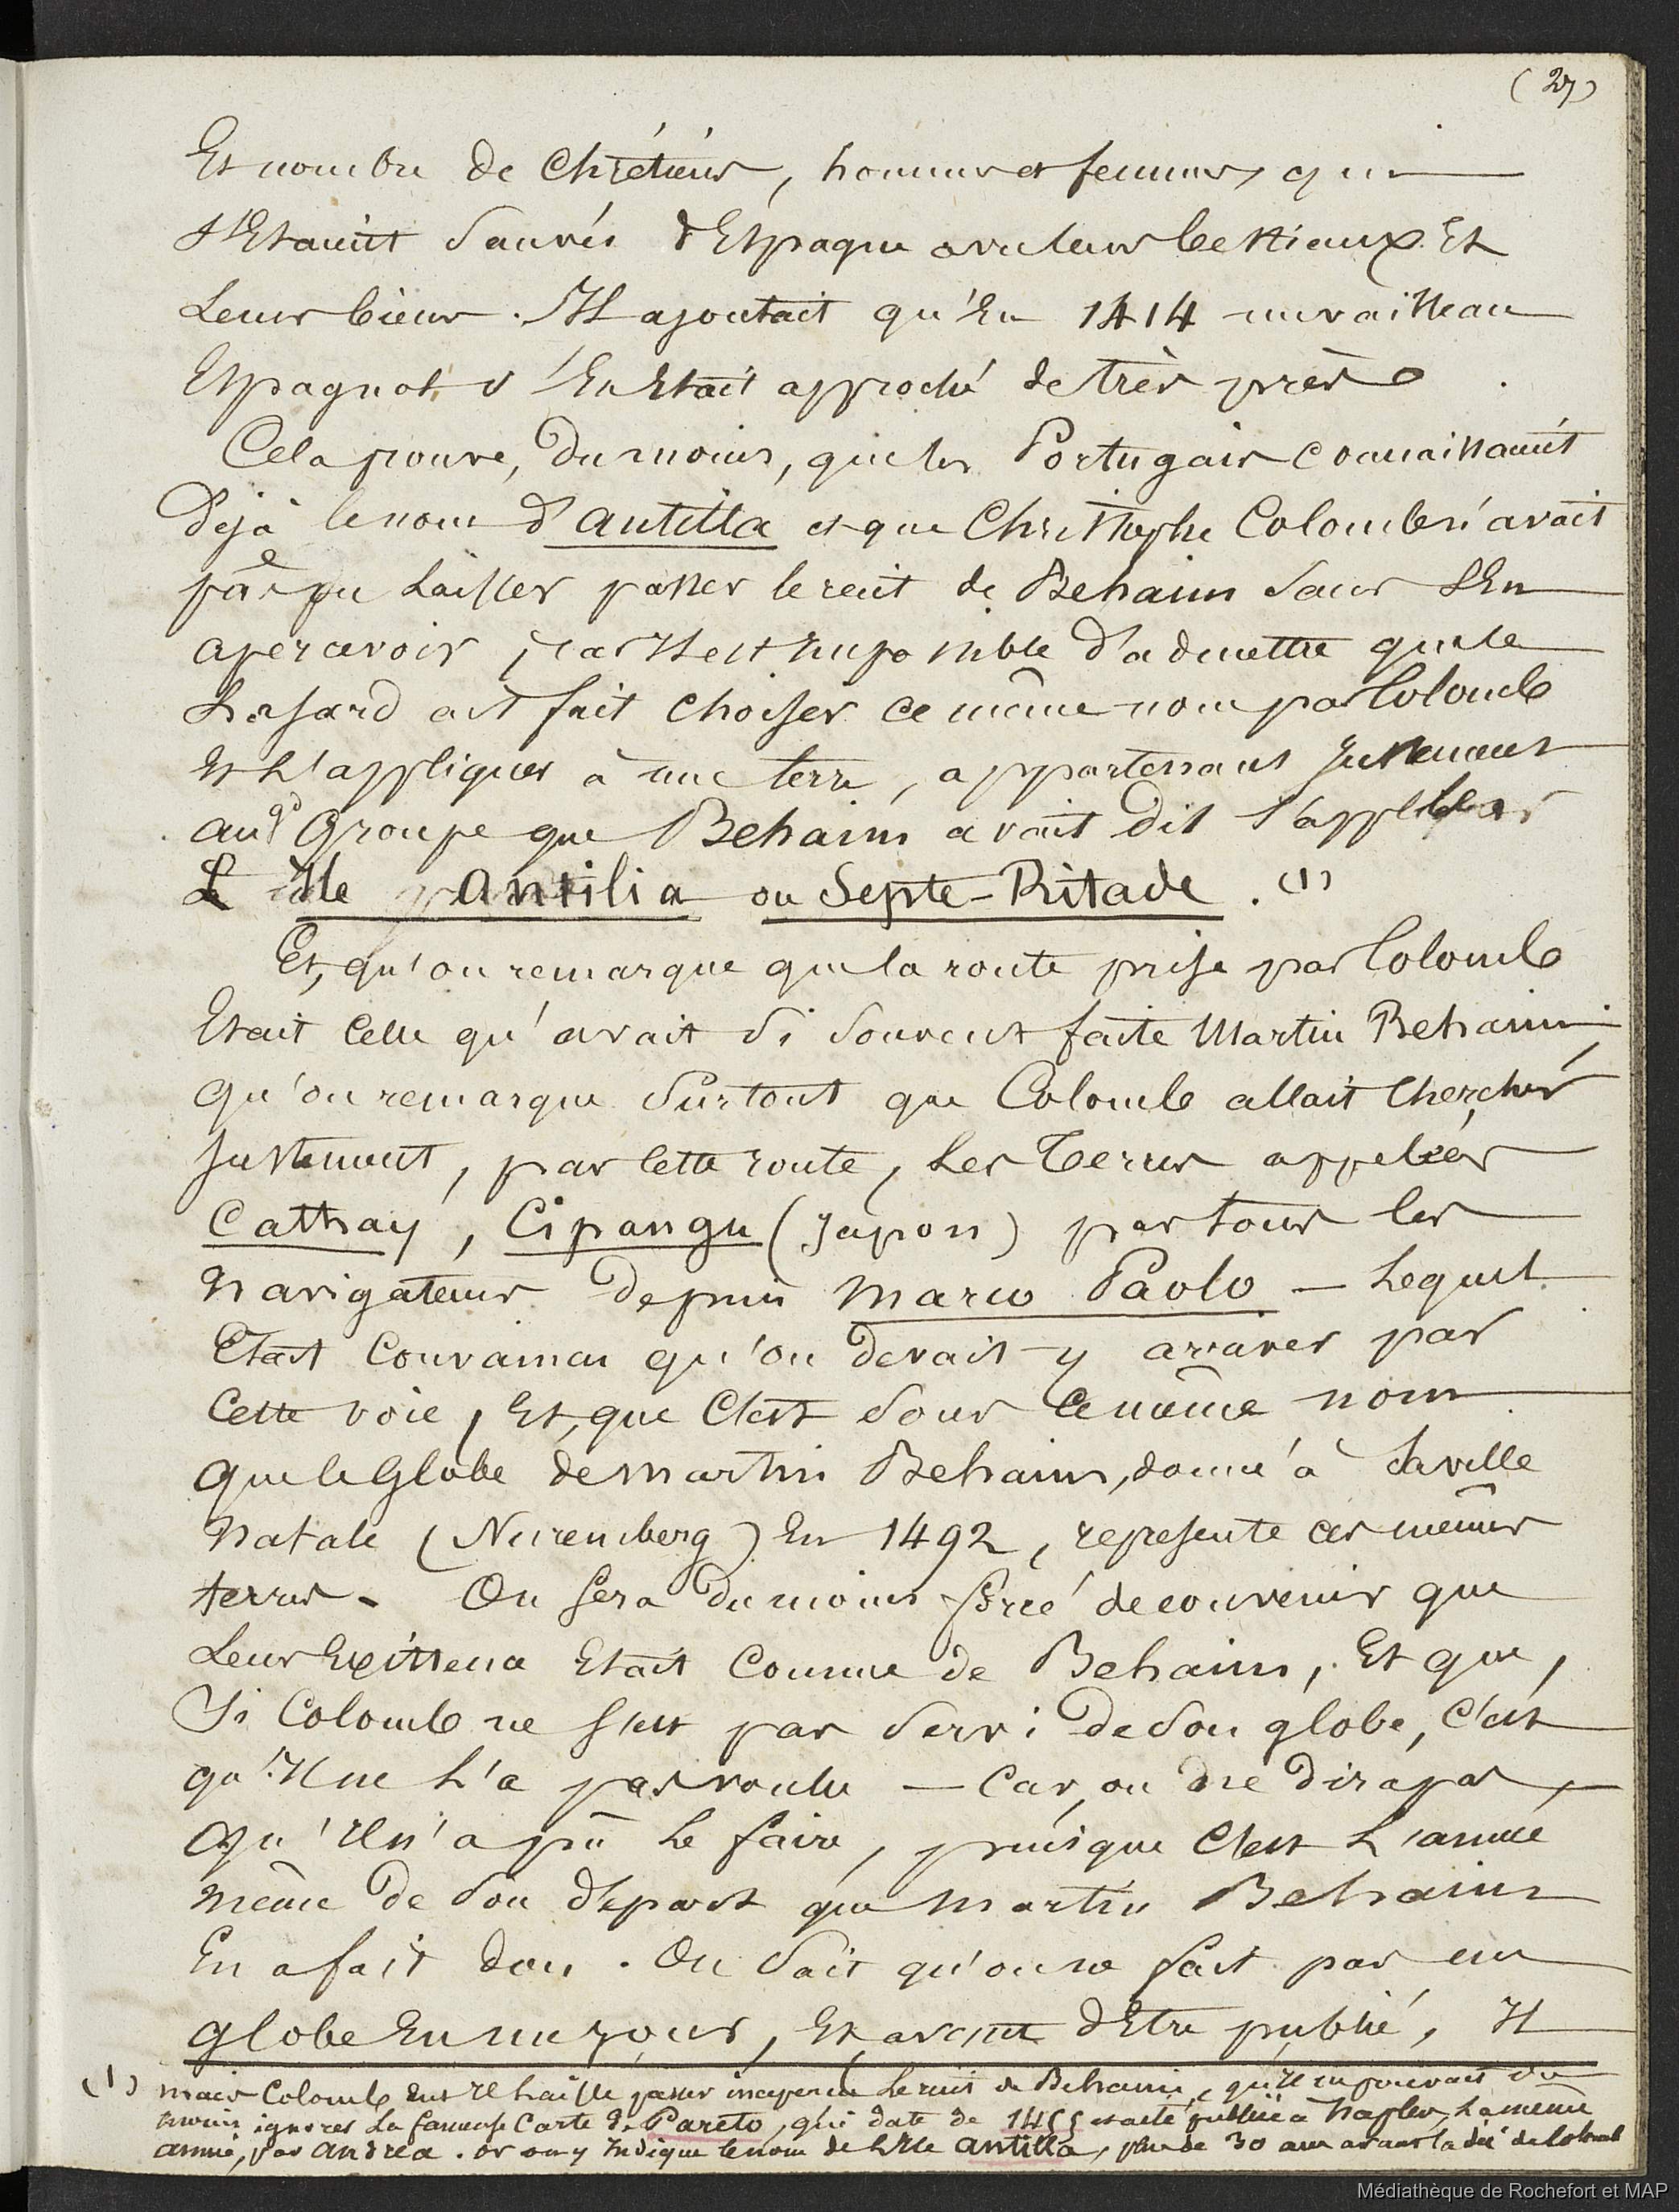 (27)
Et nombre de Chrétiens, hommes et femmes, qui
s'Etaient sauvés d'Espagne avec leurs bestiaux Et
Leurs biens. Il ajoutait qu'En 1414 un vaisseau
Espagnol s'En Etait approché de très près.
Cela prouve, du moins, que les Portugais connaissaient
Déjà le nom d'antilla et que Christophe Colomb n'avait
pas pu Laisser passer le récit de Behaim sans s'En
apercevoir, car Il est impossible d'admettre que le
hasard ait fait choisir ce même nom par Colomb
Et L'appliquer à une terre, appartenant justement
au gd Groupe que Behaim avait dit s'appeler
L'isle Antilia ou Septe-Ritade. (1)
Et, qu'on remarque que la route prise par Colomb
Etait Celle qu'avait si souvent faite Martin Behaim;
qu'on remarque surtout que Colomb allait Chercher
justement, par Cette route, Les Terres appelées
Cathay, Cipangu (Japon) par tous les
navigateurs depuis Marco Paolo — Lequel
Etait Convaincu qu'on devait y arriver par
Cette voie, Et, que C'est sous Ce même nom
que le Globe de Martin Behaim, donné à Sa ville
natale (Nuremberg) En 1492, represente ces mêmes
terres. On sera du moins forcé de convenir que
Leur Existence Etait Connue de Behaim, Et que,
Si Colomb ne s'est pas servi de son globe, C'est
qu'Il ne L'a pas voulu — Car, on ne dira pas,
qu'Il n'a pû Le faire, puisque C'est L'année
même de son départ que Martin Behaim
En a fait don. On sait qu'on ne fait pas un
globe En un jour, Et, avant d'Etre publié, Il
(1) mais Colomb Eut Il laissé passer inaperçu Le récit de Behaim, qu'Il ne pouvait du
moins ignorer La fameuse Carte de Pareto, qui date de 1455 et a été publiée à Naples, La même
année, par Andréa. or on y Indique le nom de L'Ile Antilla, plus de 30 ans avant la déc. de Colomb
Médiathèque de Rochefort et MAP